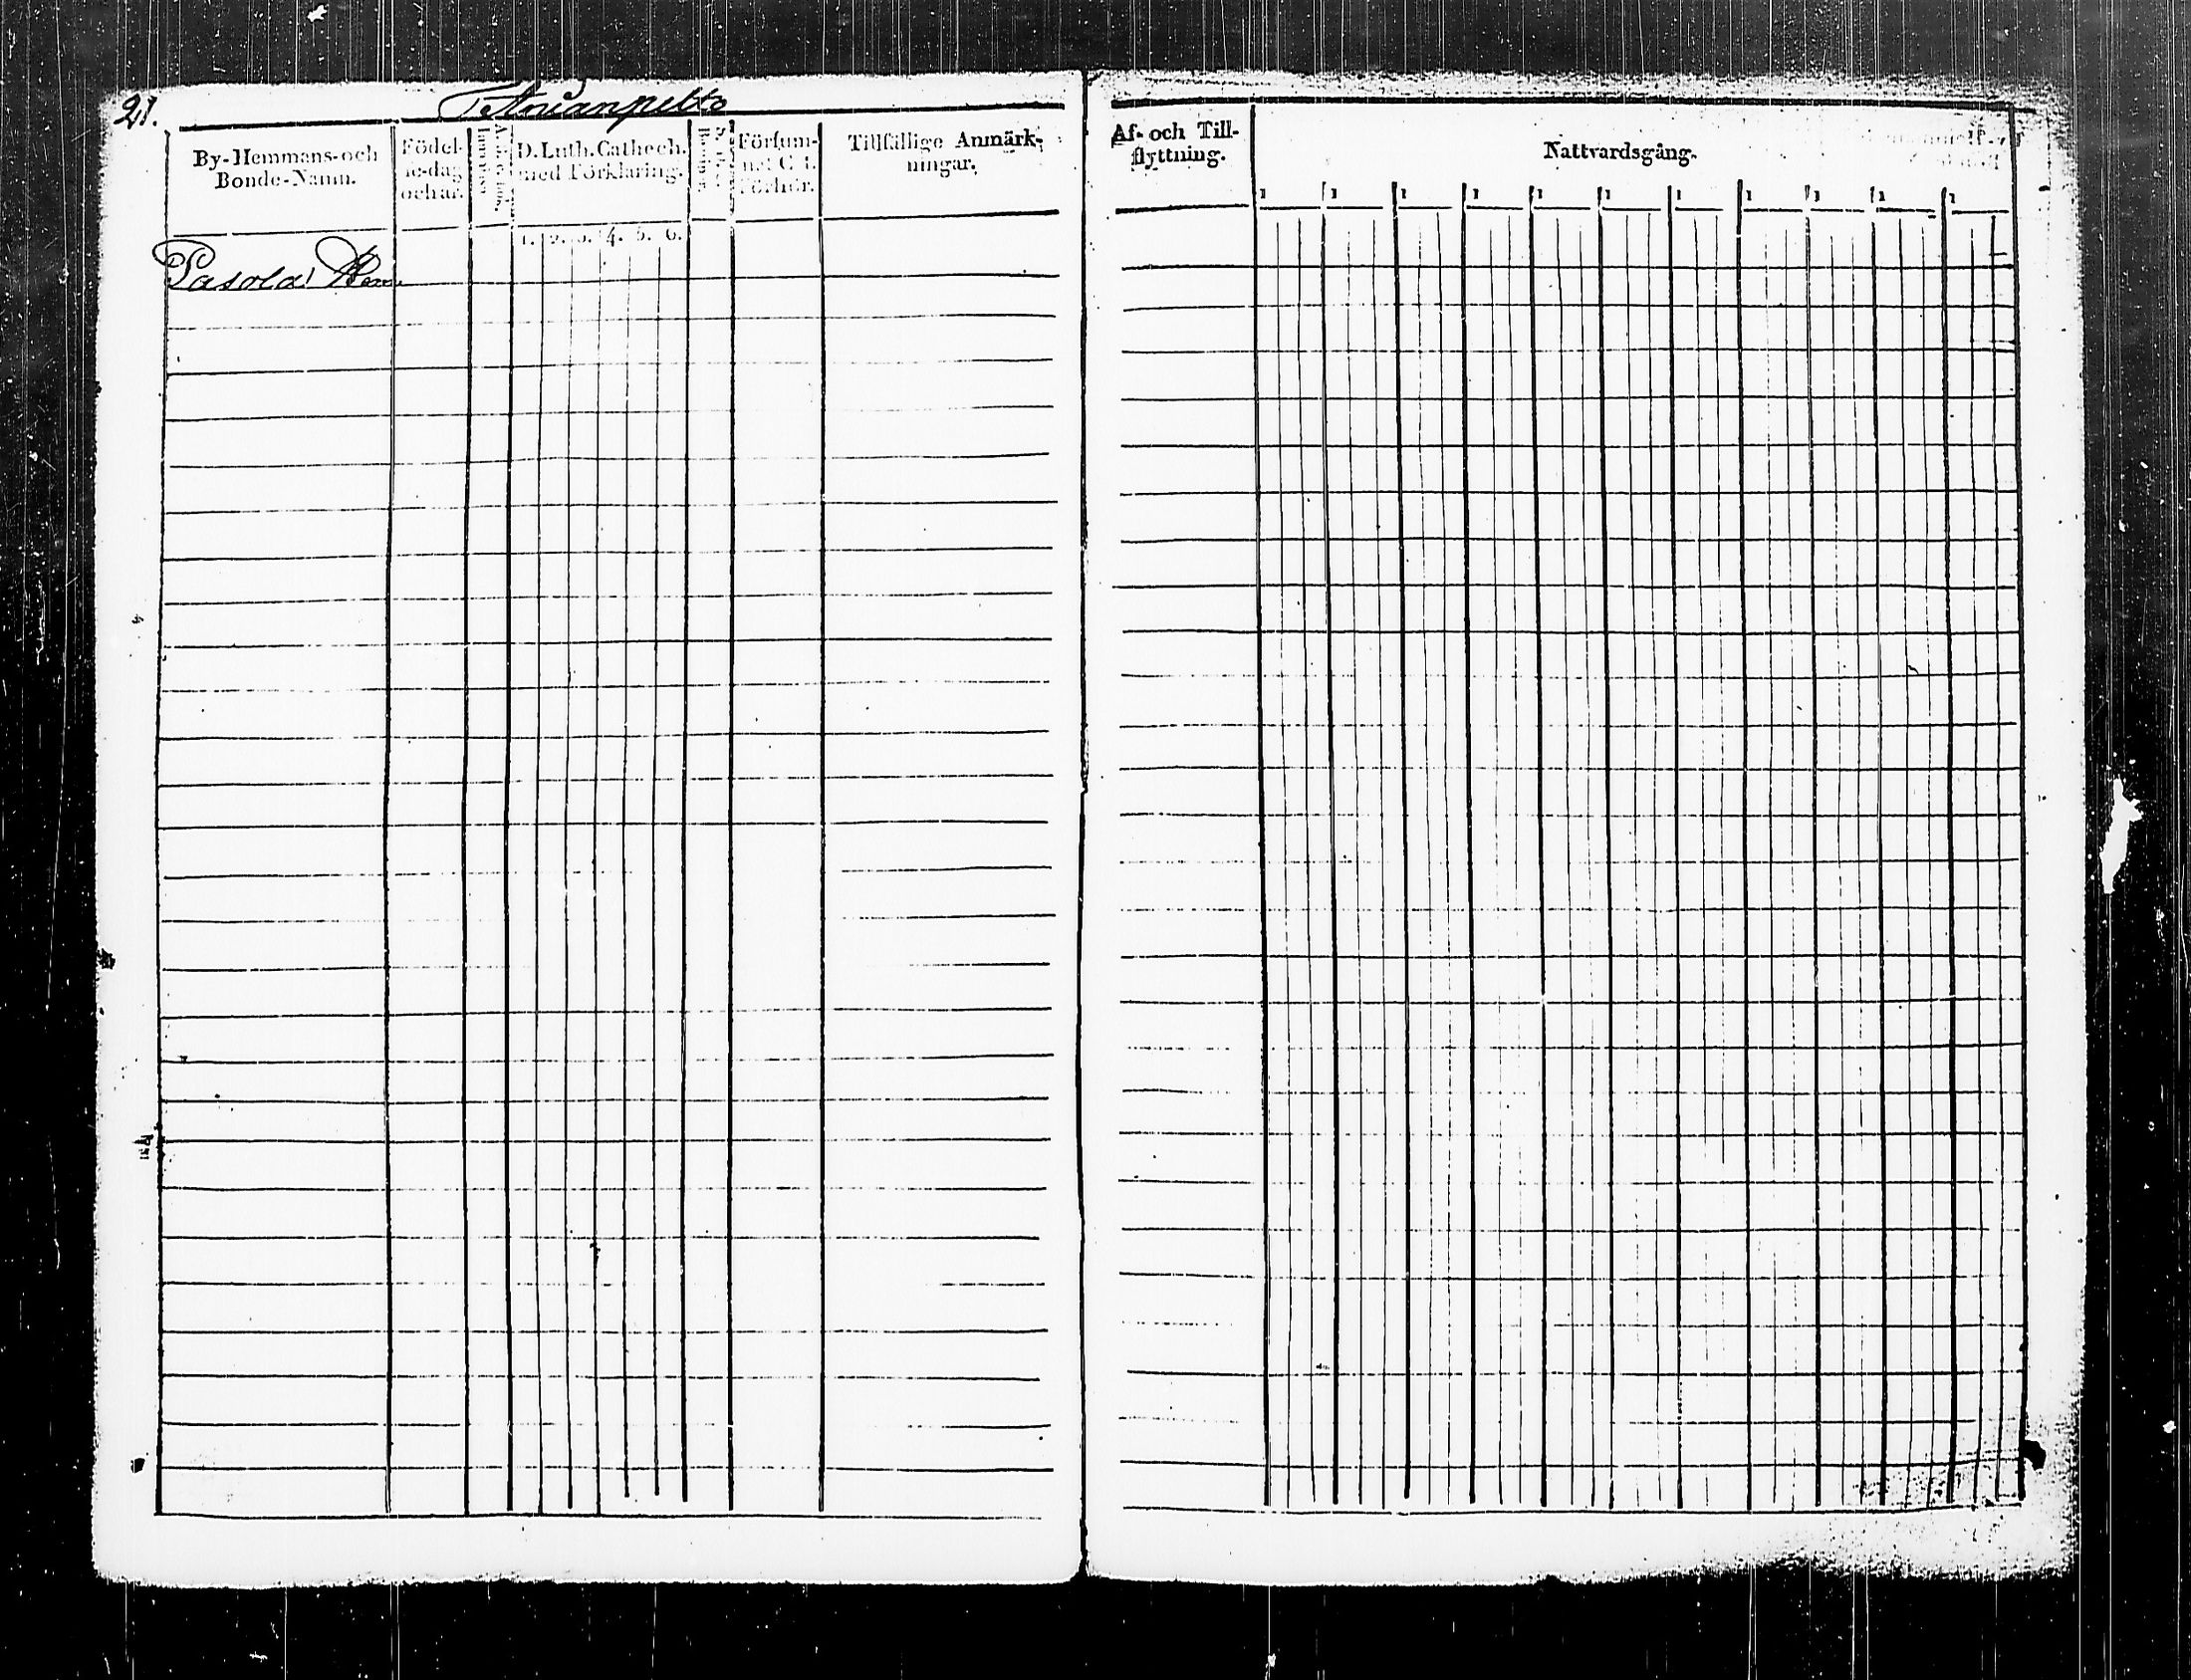 21.
Tetrianpelto
By-Hemmans-och
Bonde-Namn.
Födel-
se-dag
och år.
D. Luth. Cathech.
med Förklaring.
1. 2. 3. 4. 5. 6.
Försum-
Förhör.
Tillfällige Anmärk-
ningar.
Pasola
Af- och Till-
flyttning.
Nattvardsgång.
1 1 1 1 1 1 1 1 1 1 1